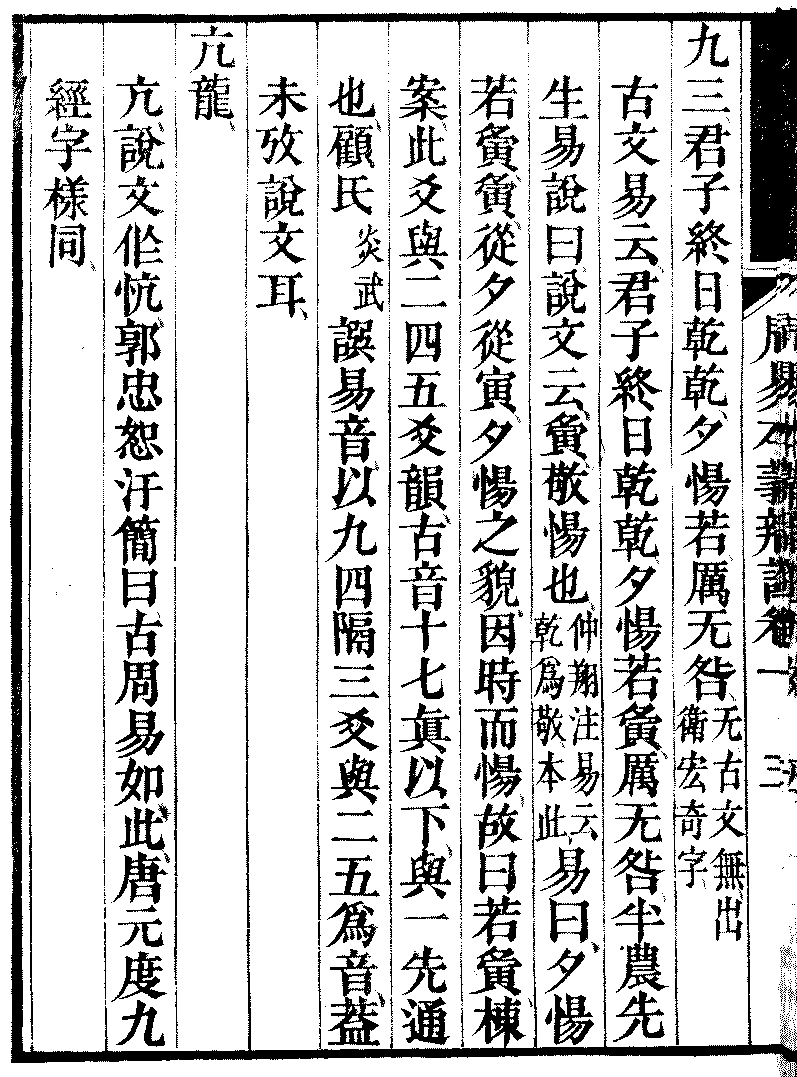 周易本義辨證卷一 三
九三君子終日乾乾、夕惕若厲无咎、无古文無出衛宏奇字、
古文易云、君子終日乾乾夕惕若夤厲无咎、半農先
生易說曰、說文云、夤敬惕也、仲翔注易云乾爲敬、本此、易曰、夕惕
若夤夤、從夕從寅、夕惕之貌、因時而惕、故曰若夤、棟
案、此爻與二四五爻韻、古音十七眞以下、與一先通
也、顧氏炎武誤易音、以九四隔三爻與二五爲音、葢
未攷說文耳、
亢龍、
亢、說文作忼、郭忠恕汗簡曰、古周易如此、唐元度九
經字樣同、